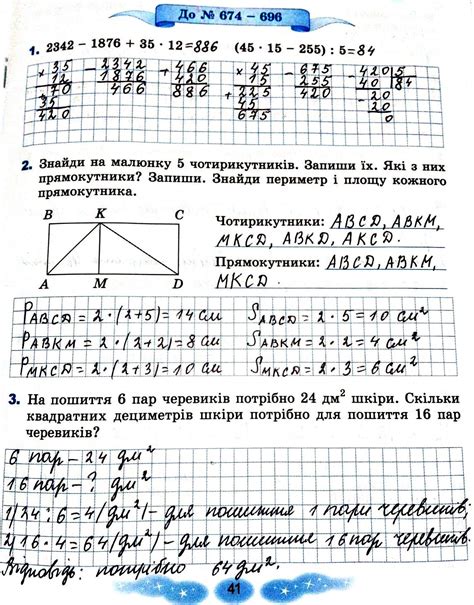 До № 674 – 696
1. 2342 – 1876 + 35 · 12 = 886 (45 · 15 – 255) : 5 = 84
× 35 – 2342 + 466 × 45 – 675 – 420 5
12 1876 420 15 255 40 84
70 466 886 + 225 420 – 20
35 45 20
420 675 0
2. Знайди на малюнку 5 чотирикутників. Запиши їх. Які з них
прямокутники? Запиши. Знайди периметр і площу кожного
прямокутника.
B K C
A M D
Чотирикутники: ABCD, ABKM,
MKCD, ABKD, AKCD.
Прямокутники: ABCD, ABKM,
MKCD.
PABCD = 2 · (2+5) = 14 см SABCD = 2 · 5 = 10 см²
PABKM = 2 · (2+2) = 8 см SABKM = 2 · 2 = 4 см²
PMKCD = 2 · (2+3) = 10 см SMKCD = 2 · 3 = 6 см²
3. На пошиття 6 пар черевиків потрібно 24 дм² шкіри. Скільки
квадратних дециметрів шкіри потрібно для пошиття 16 пар
черевиків?
6 пар – 24 дм²
16 пар – ? дм²
1) 24 : 6 = 4 (дм²) – для пошиття 1 пари черевиків;
2) 16 · 4 = 64 (дм²) – для пошиття 16 пар черевиків.
Відповідь: потрібно 64 дм².
41